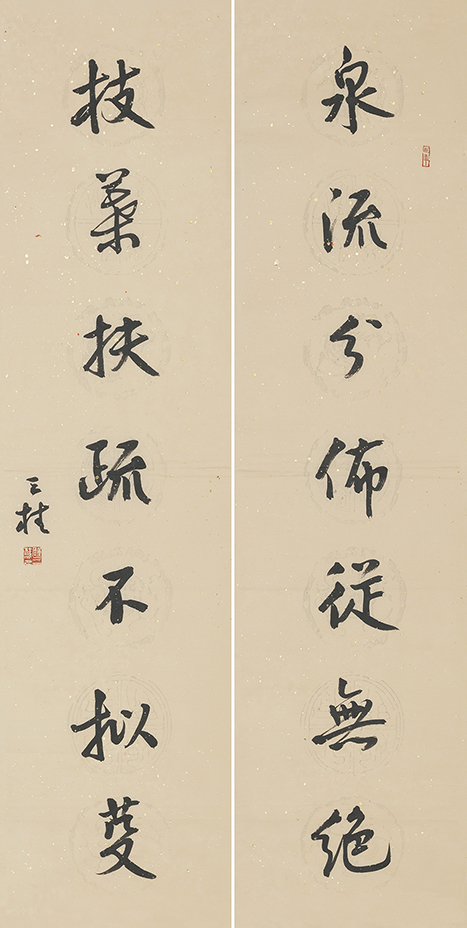 泉流分佈從無絕
技葉扶疏不拟蔓
三桂